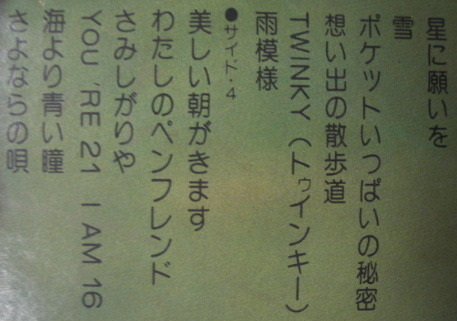 星に願いを
雪
ポケットいっぱいの秘密
想い出の散歩道
TWINKY（トゥインキー）
雨模様
●サイド・4
美しい朝がきます
わたしのペンフレンド
さみしがりや
YOU 'RE 21 I AM 16
海より青い瞳
さよならの唄